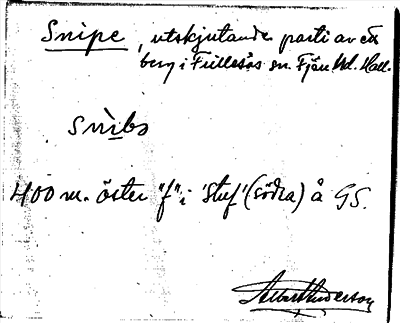 Snipe, utskjutande parti av ett
berg i Frillesås sn. Fjäre hd. Hall.
snìbə
400 m. öster "f" i 'Stuf' (södra) å GS.
Albert Anderson